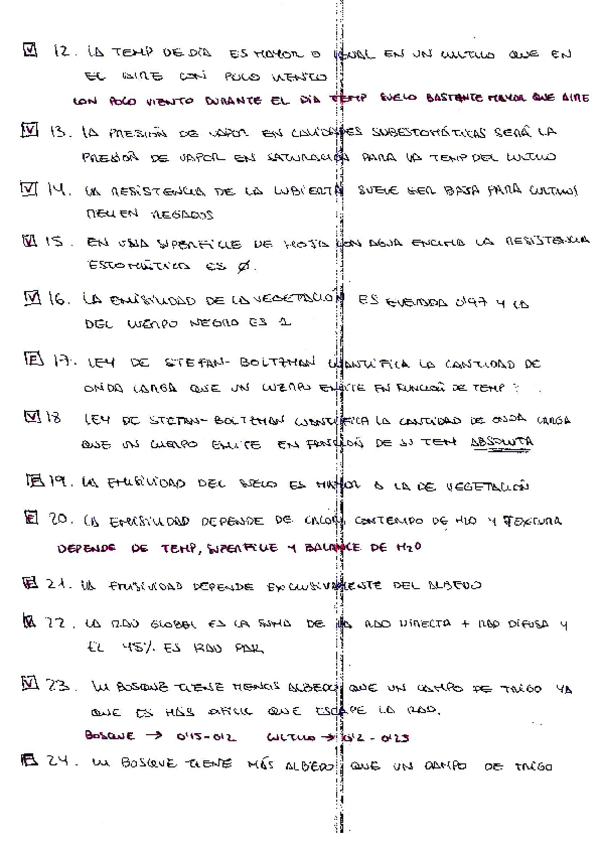 V 12. LA TEMP DE DÍA ES MAYOR O IGUAL EN UN CULTIVO QUE EN
EL AIRE CON POCO VIENTO
CON POCO VIENTO DURANTE EL DÍA TEMP SUELO BASTANTE MAYOR QUE AIRE
V 13. LA PRESIÓN DE VAPOR EN CAVIDADES SUBESTOMÁTICAS SERÁ LA
PRESIÓN DE VAPOR EN SATURACIÓN PARA LA TEMP DEL CULTIVO
V 14. LA RESISTENCIA DE LA CUBIERTA SUELE SER BAJA PARA CULTIVOS
BIEN REGADOS
V 15. EN UNA SUPERFICIE DE HOJA CON AGUA ENCIMA LA RESISTENCIA
ESTOMÁTICA ES Ø.
V 16. LA EMISIVIDAD DE LA VEGETACIÓN ES ELEVADA 0'97 Y LA
DEL CUERPO NEGRO ES 1
F 17. LEY DE STEFAN-BOLTZMAN CUANTIFICA LA CANTIDAD DE
ONDA LARGA QUE UN CUERPO EMITE EN FUNCIÓN DE TEMP
V 18 LEY DE STEFAN-BOLTZMAN CUANTIFICA LA CANTIDAD DE ONDA LARGA
QUE UN CUERPO EMITE EN FUNCIÓN DE SU TEM ABSOLUTA
F 19. LA EMISIVIDAD DEL SUELO ES MAYOR A LA DE VEGETACIÓN
F 20. LA EMISIVIDAD DEPENDE DE CALOR, CONTENIDO DE H2O Y TEXTURA
DEPENDE DE TEMP, SUPERFICIE Y BALANCE DE H2O
F 21. LA EMISIVIDAD DEPENDE EXCLUSIVAMENTE DEL ALBEDO
V 22. LA RAD GLOBAL ES LA SUMA DE LA RAD DIRECTA + RAD DIFUSA Y
EL 45% ES RAD PAR
V 23. UN BOSQUE TIENE MENOS ALBEDO QUE UN CAMPO DE TRIGO YA
QUE ES MÁS DIFÍCIL QUE ESCAPE LA RAD.
BOSQUE → 0'15-0'2 CULTIVO → 0'2 - 0'25
F 24. UN BOSQUE TIENE MÁS ALBEDO QUE UN CAMPO DE TRIGO